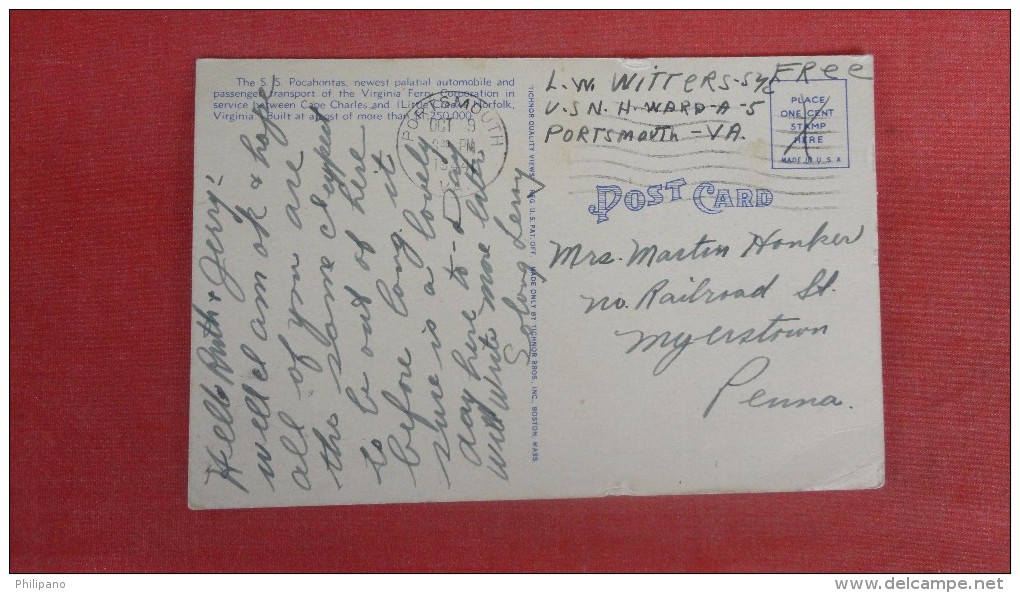 The S. S. Pocahontas, newest palatial automobile and
passenger transport of the Virginia Ferry Corporation in
service between Cape Charles and (Little Creek) Norfolk,
Virginia. Built at a cost of more than $1,250,000.
PORTSMOUTH
OCT 9
PM
Hello Ruth & Jerry:
well I am ok & hope
all of you are
the same I expect
to be out of here
before long. it
sure is a lovely
day here to-Day
will write more later
So long Leroy
TICHNOR QUALITY VIEWS, REG. U.S. PAT. OFF. MADE ONLY BY TICHNOR BROS., INC., BOSTON, MASS.
L.W. WITTERS-S
U.S N. H-WARD-A-5
PORTSMOUTH-VA.
FREE
PLACE
ONE CENT
STAMP
HERE
MADE IN U.S.A
POST CARD
Mrs. Martin Honker
no. Railroad St.
Myerstown
Penna.
Philipano
www.delcampe.net